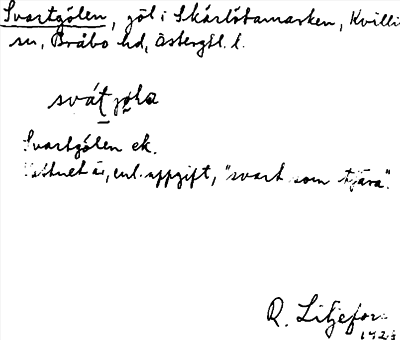 Svartgölen, göl i Skärlötamarken, Kvilli
sn, Bråbo hd, Östergtl. l.
svátjøla
Svartgölen ek.
Vattnet är, enl. uppgift, "svart som tjära".
R. Liljefor